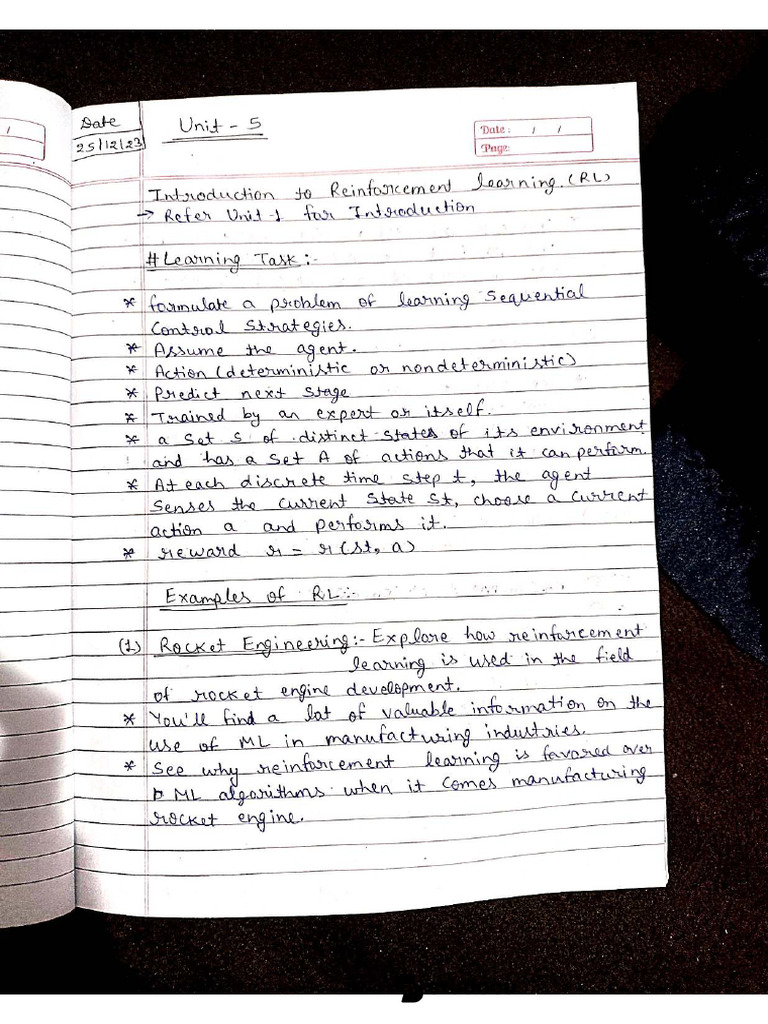 Date
25/12/23
Unit - 5
Date: / /
Page:
/
Introduction to Reinforcement learning. (RL)
→ Refer Unit 1 for Introduction
# Learning Task:-
* formulate a problem of learning sequential
control strategies.
* Assume the agent.
* Action (deterministic or nondeterministic)
* Predict next stage
* Trained by an expert or itself.
* a set S of distinct states of its environment
and has a set A of actions that it can perform.
* At each discrete time step t, the agent
senses the current state St, choose a current
action a and performs it.
* reward r = r(st, a)
Examples of RL:-
(1) Rocket Engineering:- Explore how reinforcement
learning is used in the field
of rocket engine development.
* You'll find a lot of valuable information on the
use of ML in manufacturing industries.
* See why reinforcement learning is favored over
ML algorithms when it comes manufacturing
rocket engine.